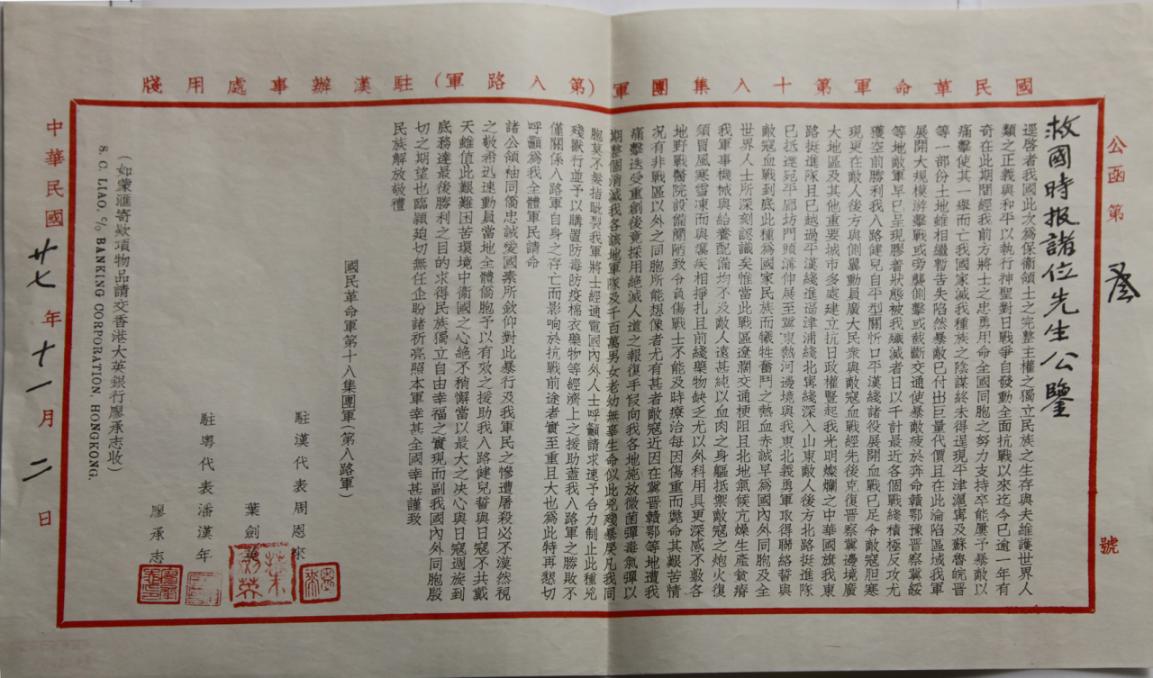 國民革命軍第十八集團軍(第八路軍)駐漢辦事處用牋
公函第 號
救國時报諸位先生公鑒
逕啓者我國此次爲保衛領土之完整主權之獨立民族之生存與夫維護世界人
類之正義與和平以執行神聖對日戰爭自發動全面抗戰以來迄今已逾一年有
奇在此期間經我前方將士之忠勇用命全國同胞之努力支持卒能屢予暴敵以
痛擊使其一舉而亡我國家滅我種族之陰謀終未得逞現平津滬寧及蘇魯皖晉
等一部份土地雖相繼暫告失陷然暴敵已付出巨量代價且在此淪陷區域我軍
展開大規模游擊戰或旁襲側擊或截斷交通使暴敵疲於奔命贛鄂豫晉察冀綏
等地敵軍早已呈現膠着狀態被我殲滅者日以千計最近各個戰綫積極反攻尤
獲空前勝利我八路健兒自平型關忻口平漢綫諸役展開血戰已足令敵寇胆寒
現更在敵人後方與側翼動員廣大民衆與敵寇血戰經先後克復晋察冀邊境廣
大地區及其他重要城市多處建立抗日政權豎起我光明燦爛之中華國旗我東
路挺進隊且已越過平漢綫進逼津浦綫北寧綫深入山東敵人後方北路挺進隊
已抵達宛平廊坊門頭溝伸展至冀東熱河邊境與我東北義勇軍取得聯絡誓與
敵寇血戰到底此種爲國家民族而犧牲奮鬥之熱血赤誠早為國內外同胞及全
世界人士所深刻認識矣惟當此戰區遼闊交通梗阻且北地氣候亢燥生產貧瘠
我軍事機械與給養配備均不及敵人遠甚純以血肉之身軀抵禦敵寇之炮火復
須冒風寒雪凍而與瘼疾相掙扎且前綫藥物缺乏尤以外科用具更深感不敷各
地對戰醫院設備簡陋致令負傷戰士不能及時療治每因傷重而斃命其艱苦情
况有非戰區以外之同胞所能想像者尤有甚者敵寇近因在冀晋贛鄂等地遭我
痛擊迭受重創後竟採用絕滅人道之報復手段向我各地施放微菌彈毒氣彈以
期整個消滅我各該地軍隊及千百萬男女老幼無辜生命似此兇殘暴戾凡我同
胞莫不髮指眦裂我軍將士經通電國內外人士呼籲請求速予合力制止此種兇
殘獸行並予以購置防毒防疫棉衣藥物等經濟上之援助蓋我八路軍之勝敗不
僅關係八路軍自身之存亡而影响於抗戰前途者實至重且大也爲此特再懇切
呼籲爲我全體軍民請命
諸公領袖同僑忠誠愛國素所欽仰對此暴行及我軍民之慘遭屠殺必不漠然視
之敬希迅速動員當地全體僑胞予以有效之援助我八路健兒誓與日寇不共戴
天雖值此艱難困苦環境中衛國之心絕不稍懈當以最大之决心與日寇週旋到
底務達最後勝利之目的求得民族獨立自由幸福之實現而副我國內外同胞殷
切之期望也臨穎迫切無任企盼諸祈亮照本軍幸甚全國幸甚謹致
民族解放敬禮
國民革命軍第十八集團軍(第八路軍)
駐漢代表周恩來
葉劍英
駐粵代表潘漢年
廖承志
(如蒙滙寄欵項物品請交香港大英銀行廖承志收)
S. C. LIAO, C/O BANKING CORPORATION, HONGKONG.
中華民國廿七年十一月二日